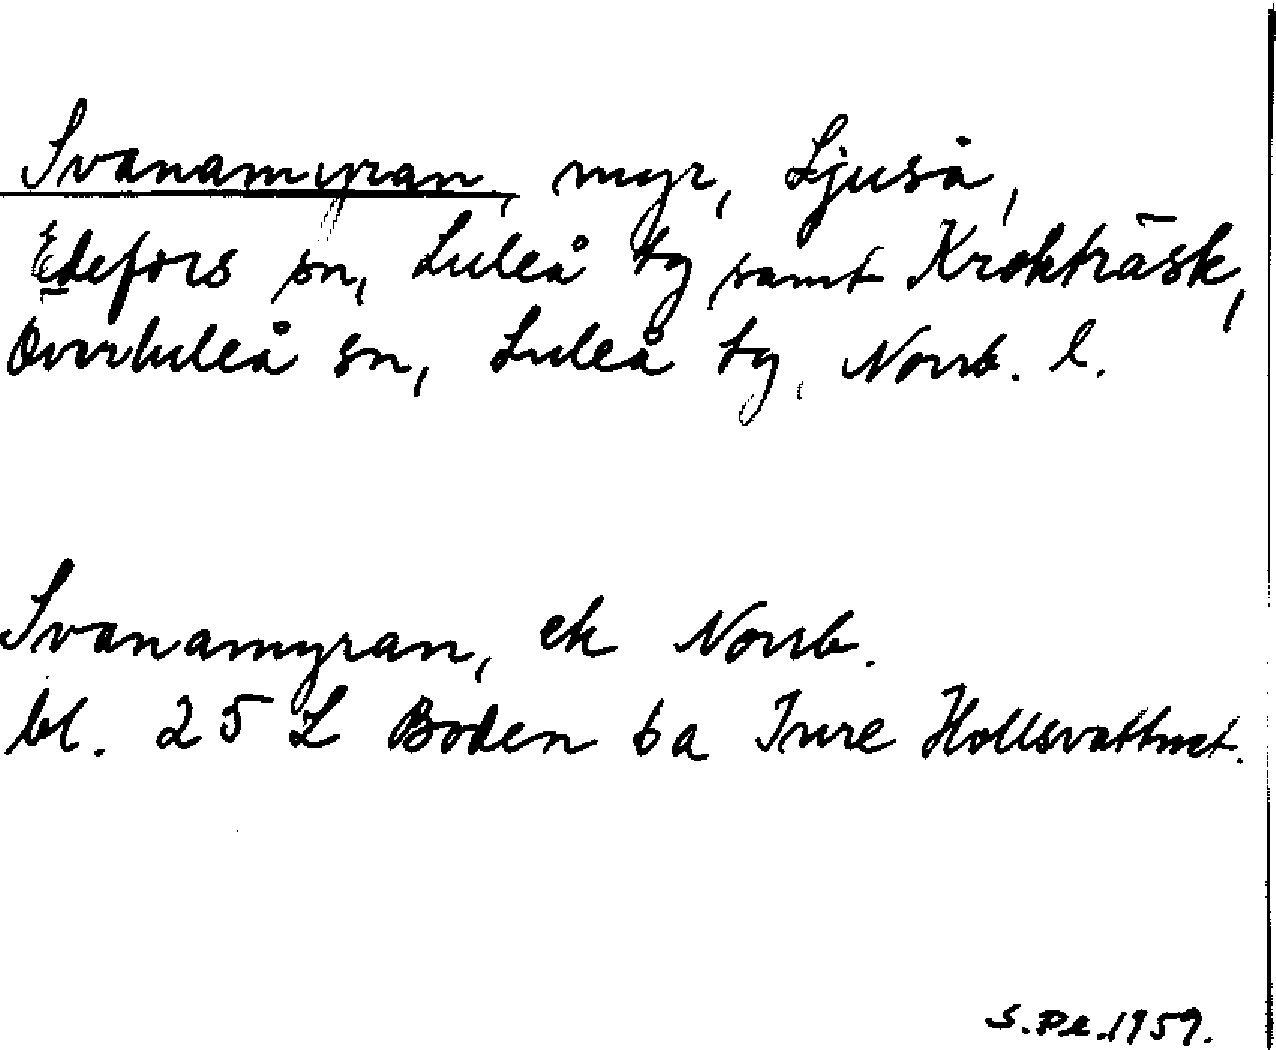 Svanamyran, myr, Ljuså,
Edefors sn, Luleå tg samt Krokträsk,
Överluleå sn, Luleå tg, Norrb. l.
Svanamyran, ek Norrb.
bl. 25 L Boden 6a Inre Hollsvattnet.
S.Pl.1959.